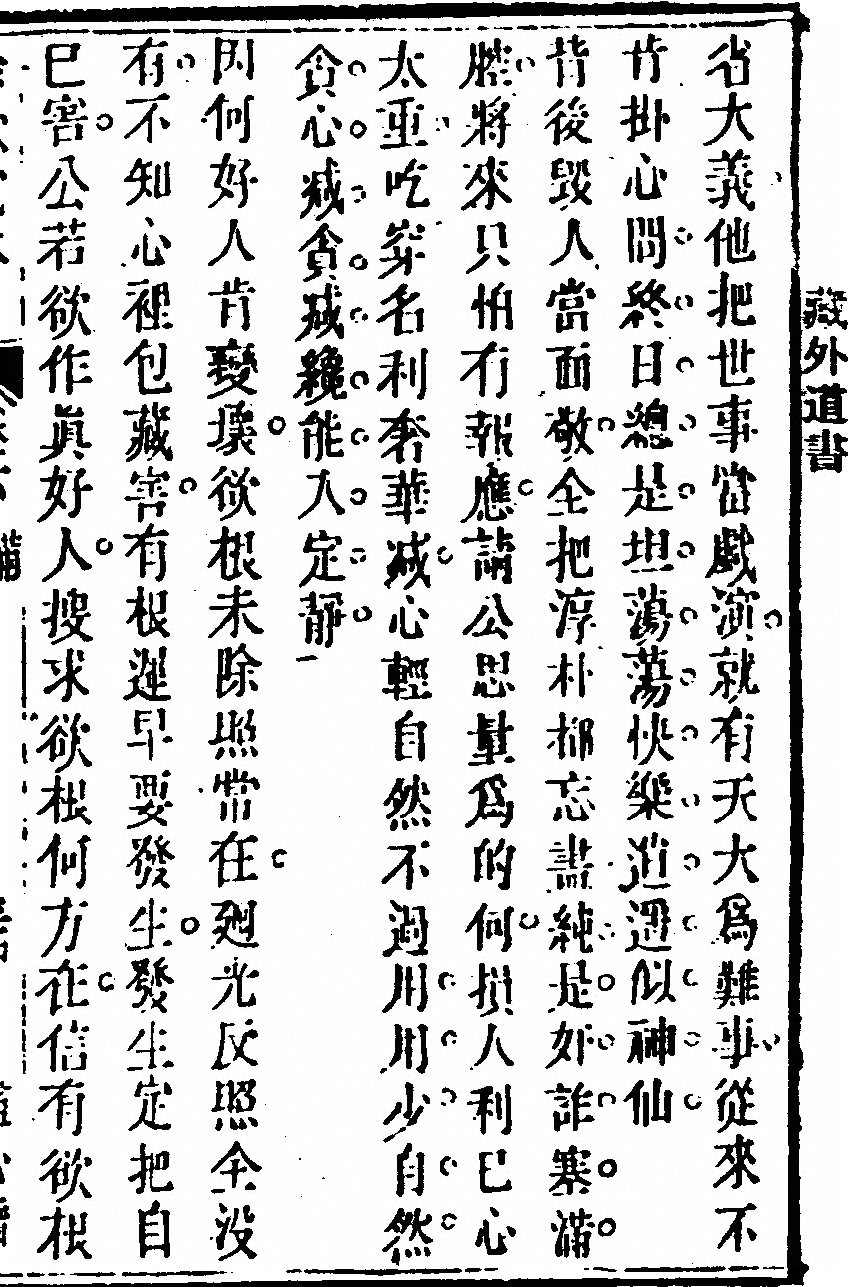 藏外道書
省大義他把世事當戲演就有天大為難事從來不
肯掛心間終日總是坦蕩蕩快樂逍遥似神仙
背後毀人當面敬全把淳朴都忘盡純是奸詐塞滿
腔將來只怕有報應請公思量爲的何損人利已心
太重吃穿名利奢華減心輕自然不過用用少自然
貪心減貪減纔能入定靜
因何好人肯變壞欲根未除照常在廻光反照全沒
有不知心裡包藏害有根遲早要發生發生定把自
巳害公若欲作眞好人搜求欲根何方在信有欲根